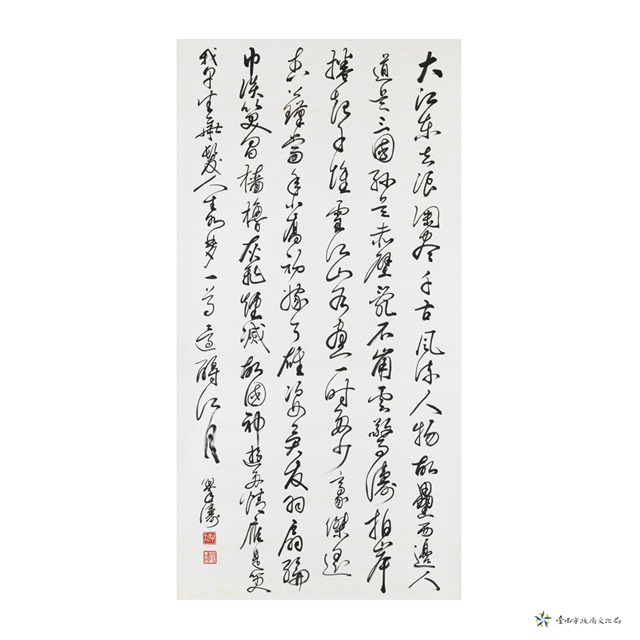 大江東去浪淘盡千古風流人物故壘西邊人
道是三國孫吳赤壁亂石崩雲驚濤拍岸
捲起千堆雪江山如畫一時多少豪傑遙
想公瑾當年小喬初嫁了雄姿英發羽扇綸
巾談笑間檣櫓灰飛煙滅故國神遊多情應是笑
我早生華髮人生如夢一尊還酹江月
臺南市政府文化局